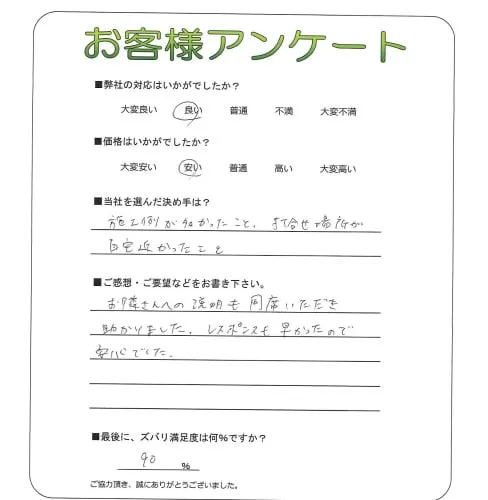 お客様アンケート
■弊社の対応はいかがでしたか?
大変良い 良い 普通 不満 大変不満
■価格はいかがでしたか?
大変安い 安い 普通 高い 大変高い
■当社を選んだ決め手は?
施工例が多かったこと、打合せ場所が
自宅近かったこと
■ご感想・ご要望などをお書き下さい。
お隣さんへの説明も同席いただき
助かりました。レスポンスも早かったので
安心でした。
■最後に、ズバリ満足度は何%ですか?
90 %
ご協力頂き、誠にありがとうございました。